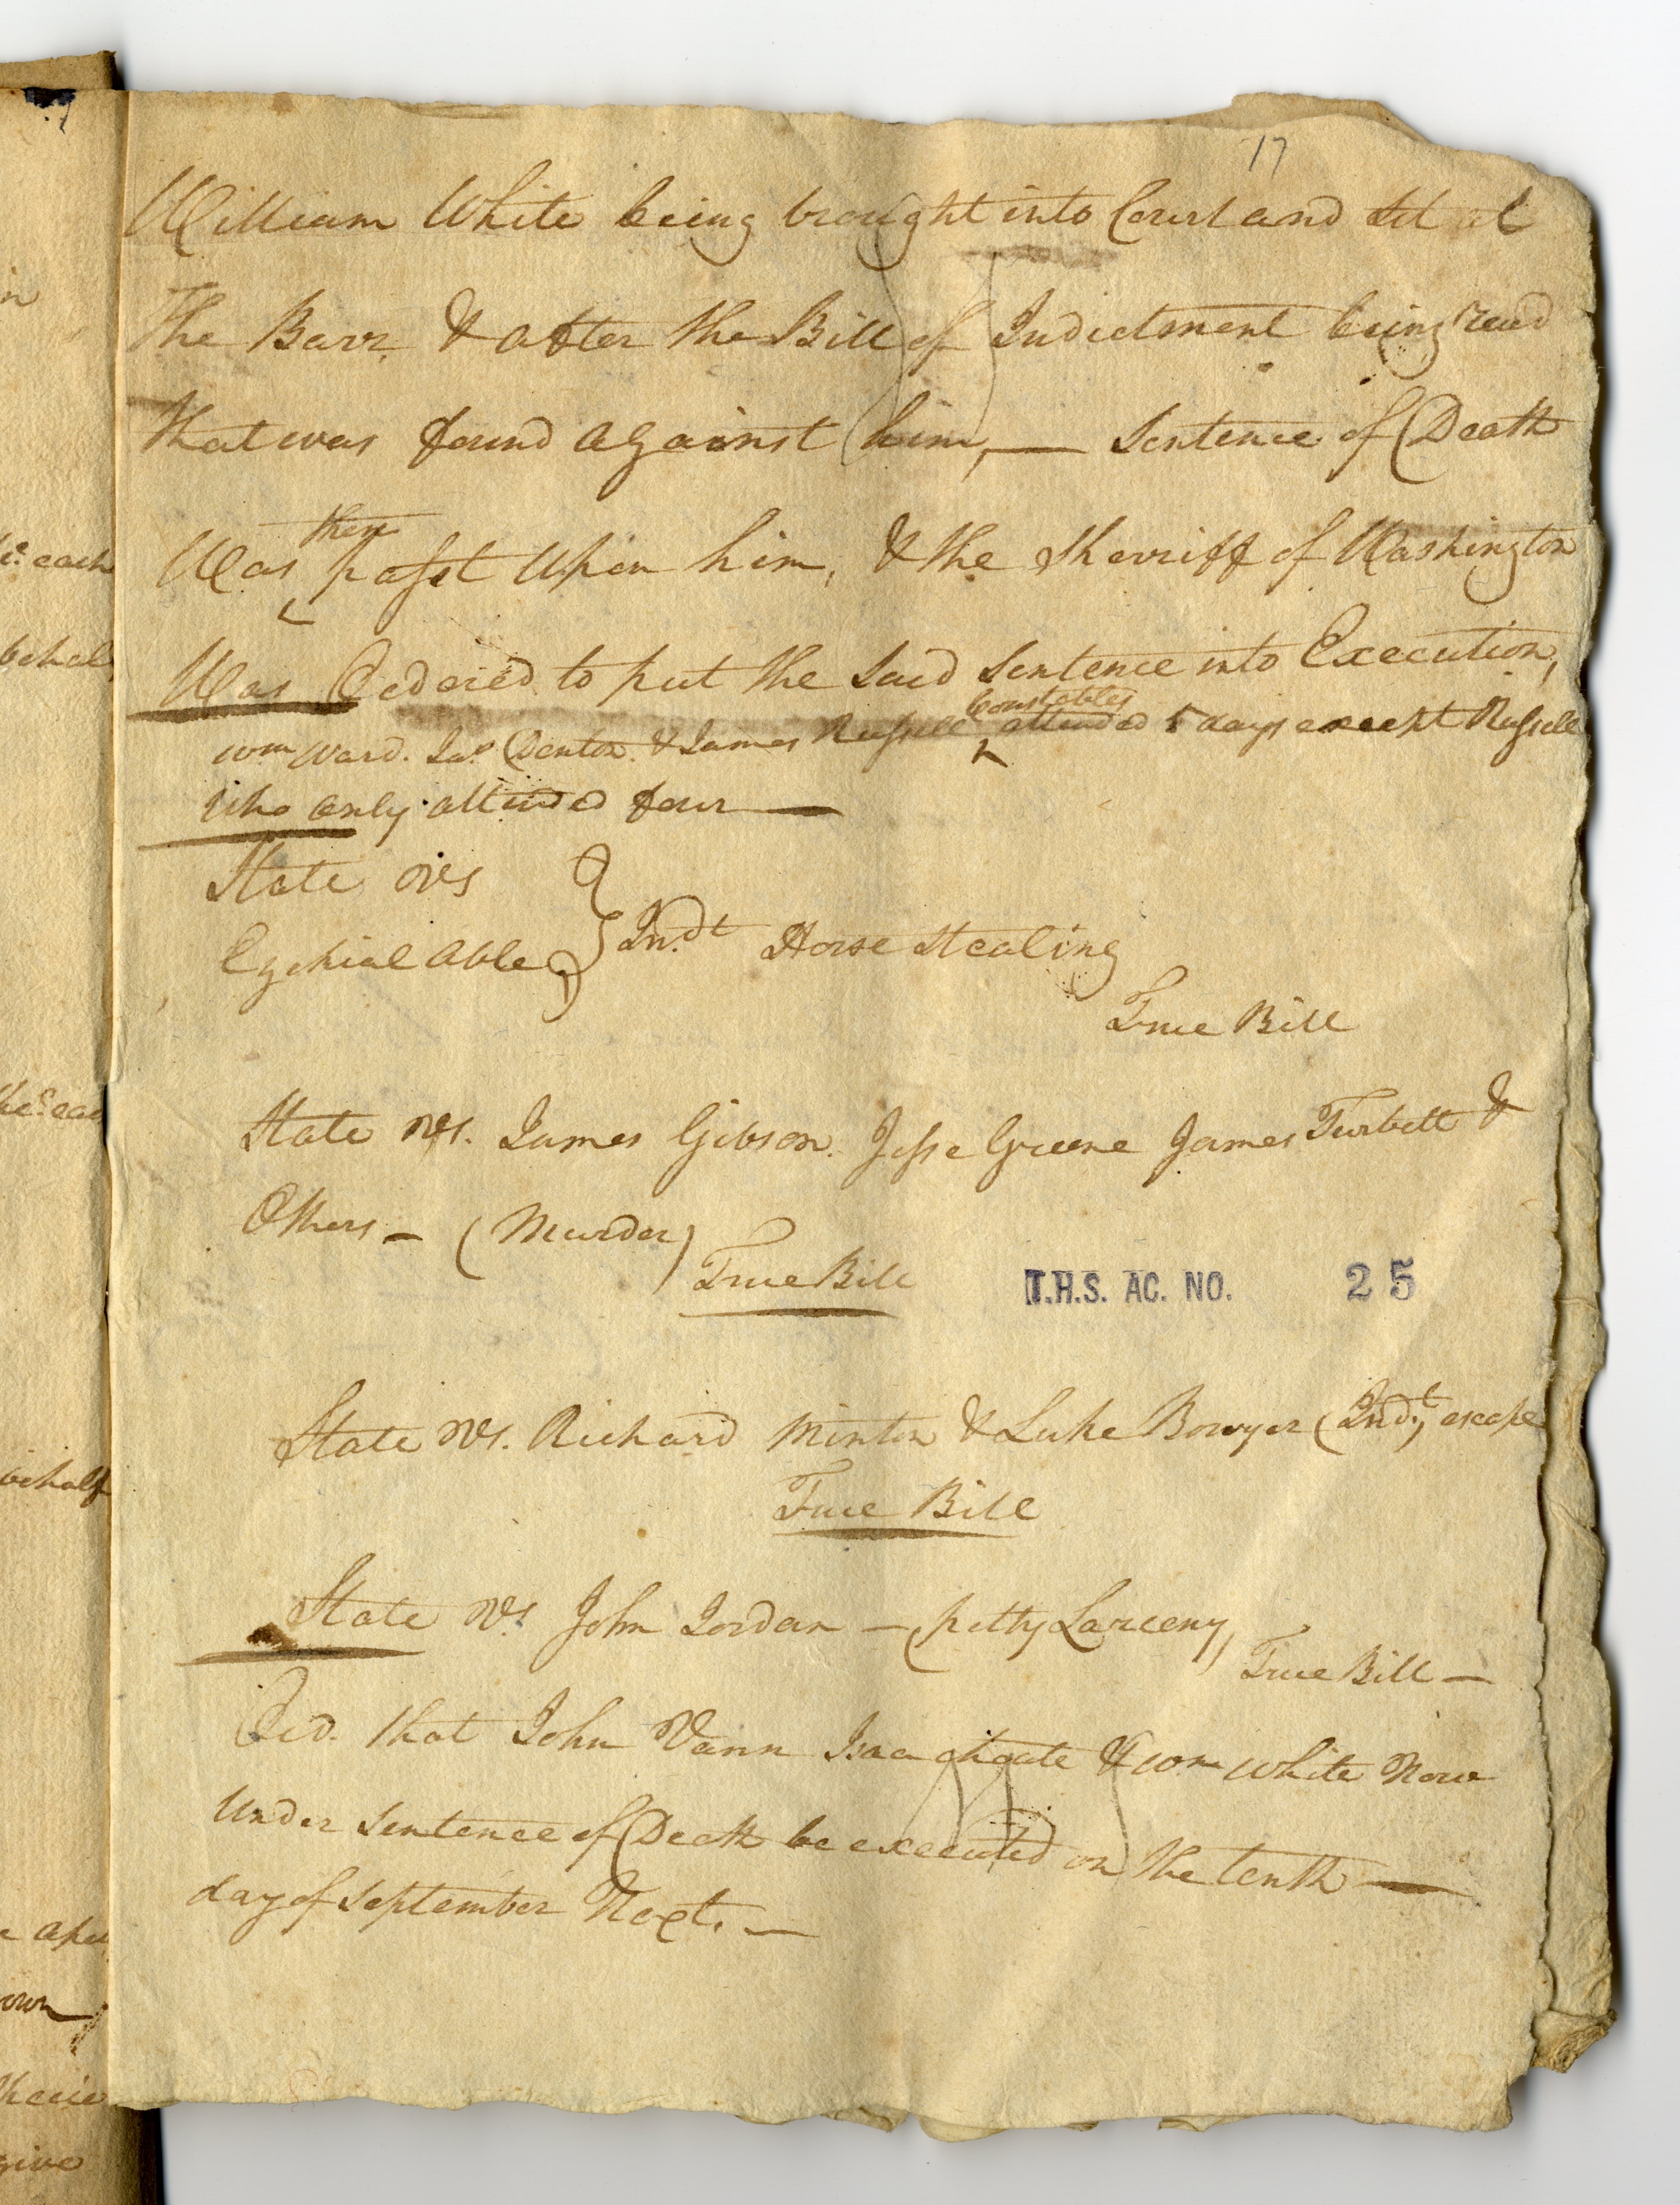 17
William White being brought into Court and set at
The Barr & after the Bill of Indictment being read
that was found against him, — Sentence of Death
Was then past Upon him, & the Sherriff of Washington
Was Ordered to put the Said Sentence into Execution,
Wm Ward. Jas Denton. & James Russell Constables attended 5 days except Russell
Who only attended four —
State vs
Ezekial Able } Indt Horse Stealing
True Bill
State vs. James Gibson. Jesse Greene James Turbett &
Others — (Murder)
True Bill
T.H.S. AC. NO. 25
State vs. Richard Minton & Luke Bowyer (Indt, escape
True Bill
State vs John Jordan — (petty Larceny)
True Bill —
Ord. that John Vann Isaac Choate & Wm White Now
Under Sentence of Death be executed on the tenth —
day of September Next. —
n
each
behalf
behalf
give